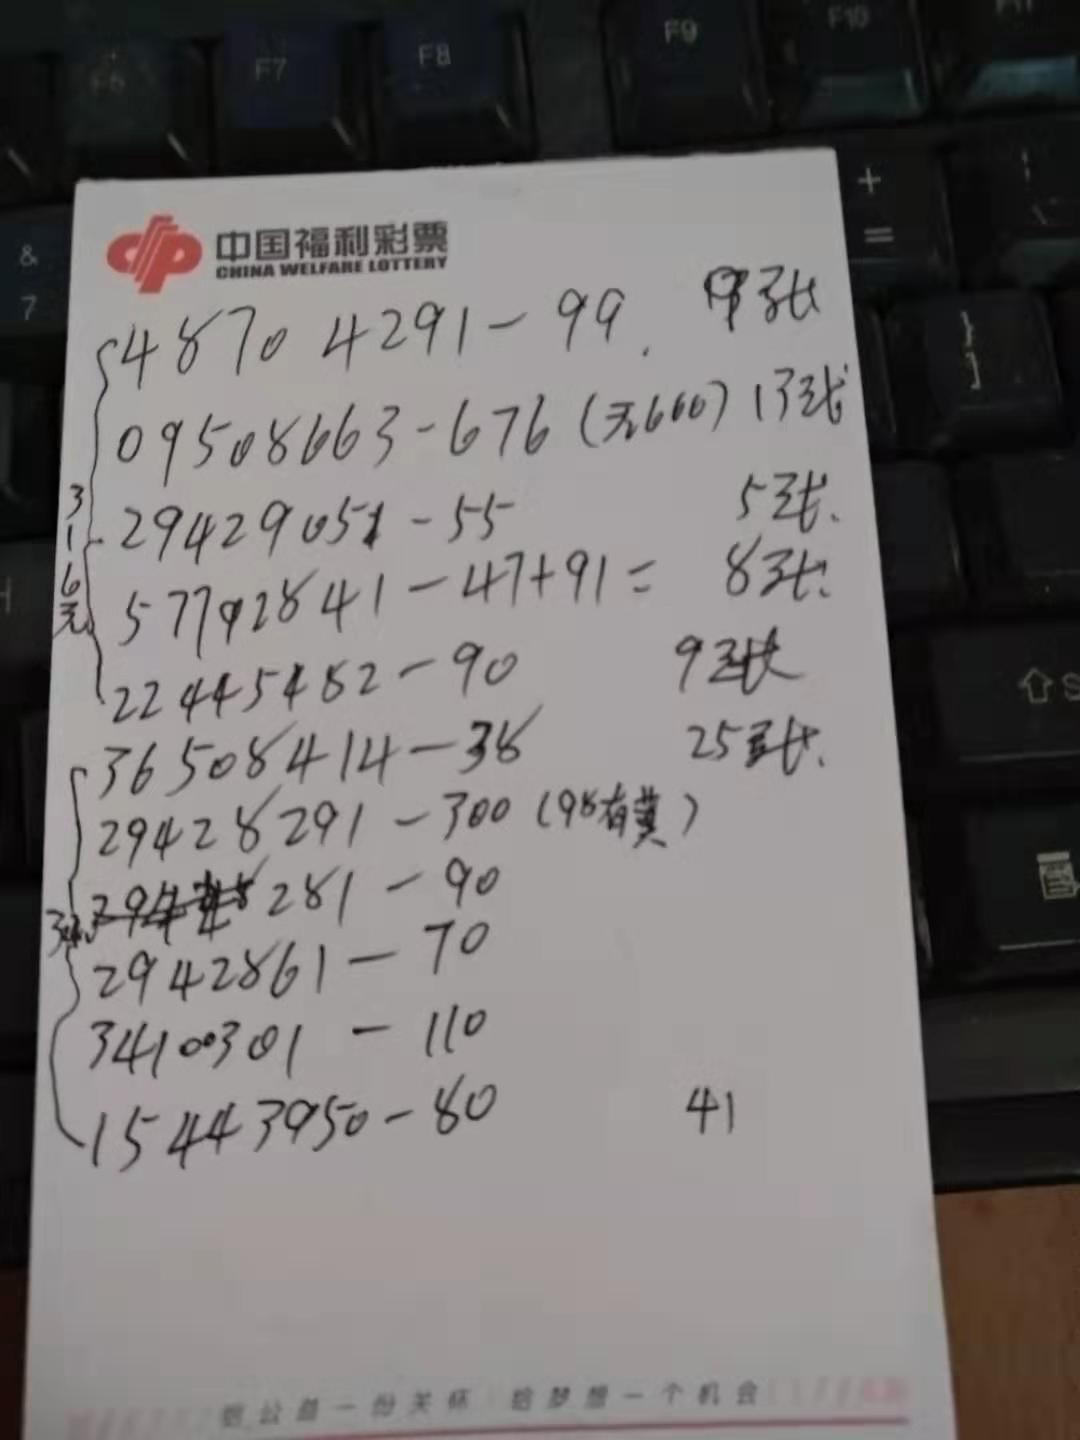 F6 F7 F8 F9 F10 F11
& 7
+ =
} ]
中国福利彩票
CHINA WELFARE LOTTERY
48704291-99. 9张
09508663-676(无600) 13张
29429051-55 5张.
57792841-47+91= 8张.
22445482-90 9张
316元
36508414-38 25张.
29428291-300(98有奖)
281-90
2942861-70
34100301-110
15443950-80 41
给公益一份关怀 给梦想一个机会